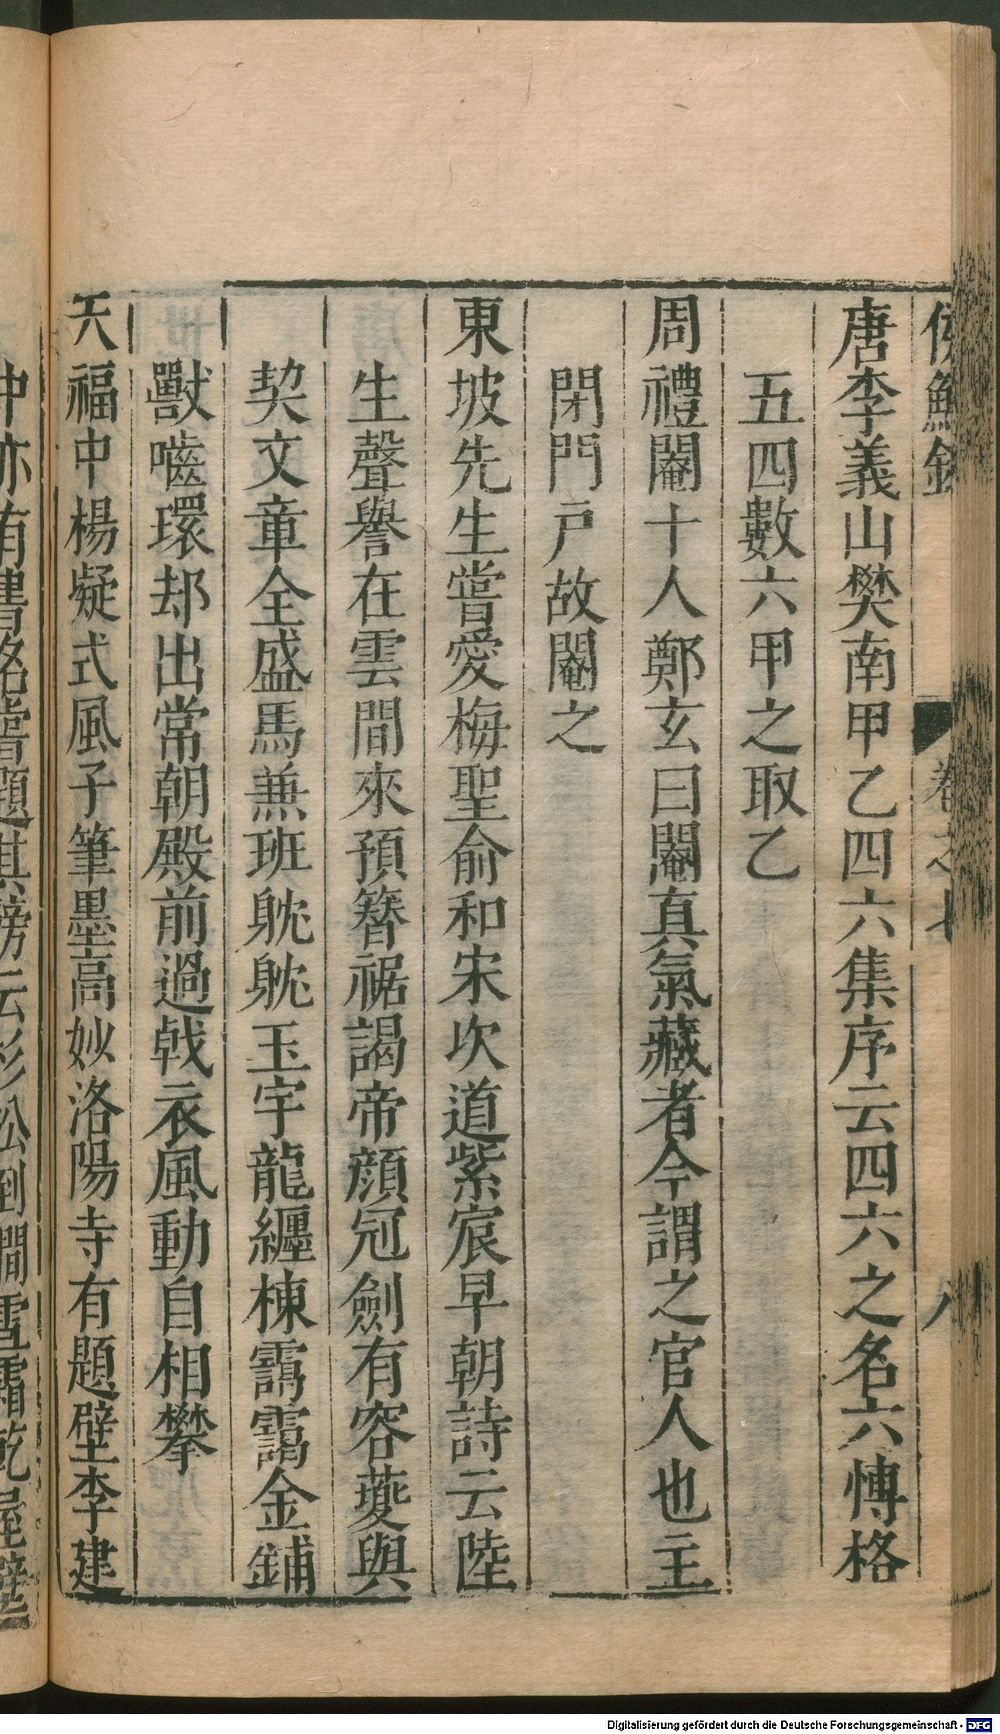 侯鯖錄 卷之七 八
唐李義山樊南甲乙四六集序云四六之名六愽格
五四數六甲之取乙
周禮閹十人鄭玄曰閹真氣藏者今謂之宦人也主
閉門戸故閹之
東坡先生嘗愛梅聖俞和宋次道紫宸早朝詩云陸
生聲譽在雲間來預簪裾謁帝顔冠劍有容䕫與
契文章全盛馬兼班躭躭玉宇龍纒棟靄靄金鋪
獸嚙環却出常朝殿前過戟衣風動自相攀
天福中楊凝式風子筆墨高妙洛陽寺有題壁李建
中亦有書名嘗題其旁云杉松倒澗雪霜乾屋壁
Digitalisierung gefördert durch die Deutsche Forschungsgemeinschaft - DFG